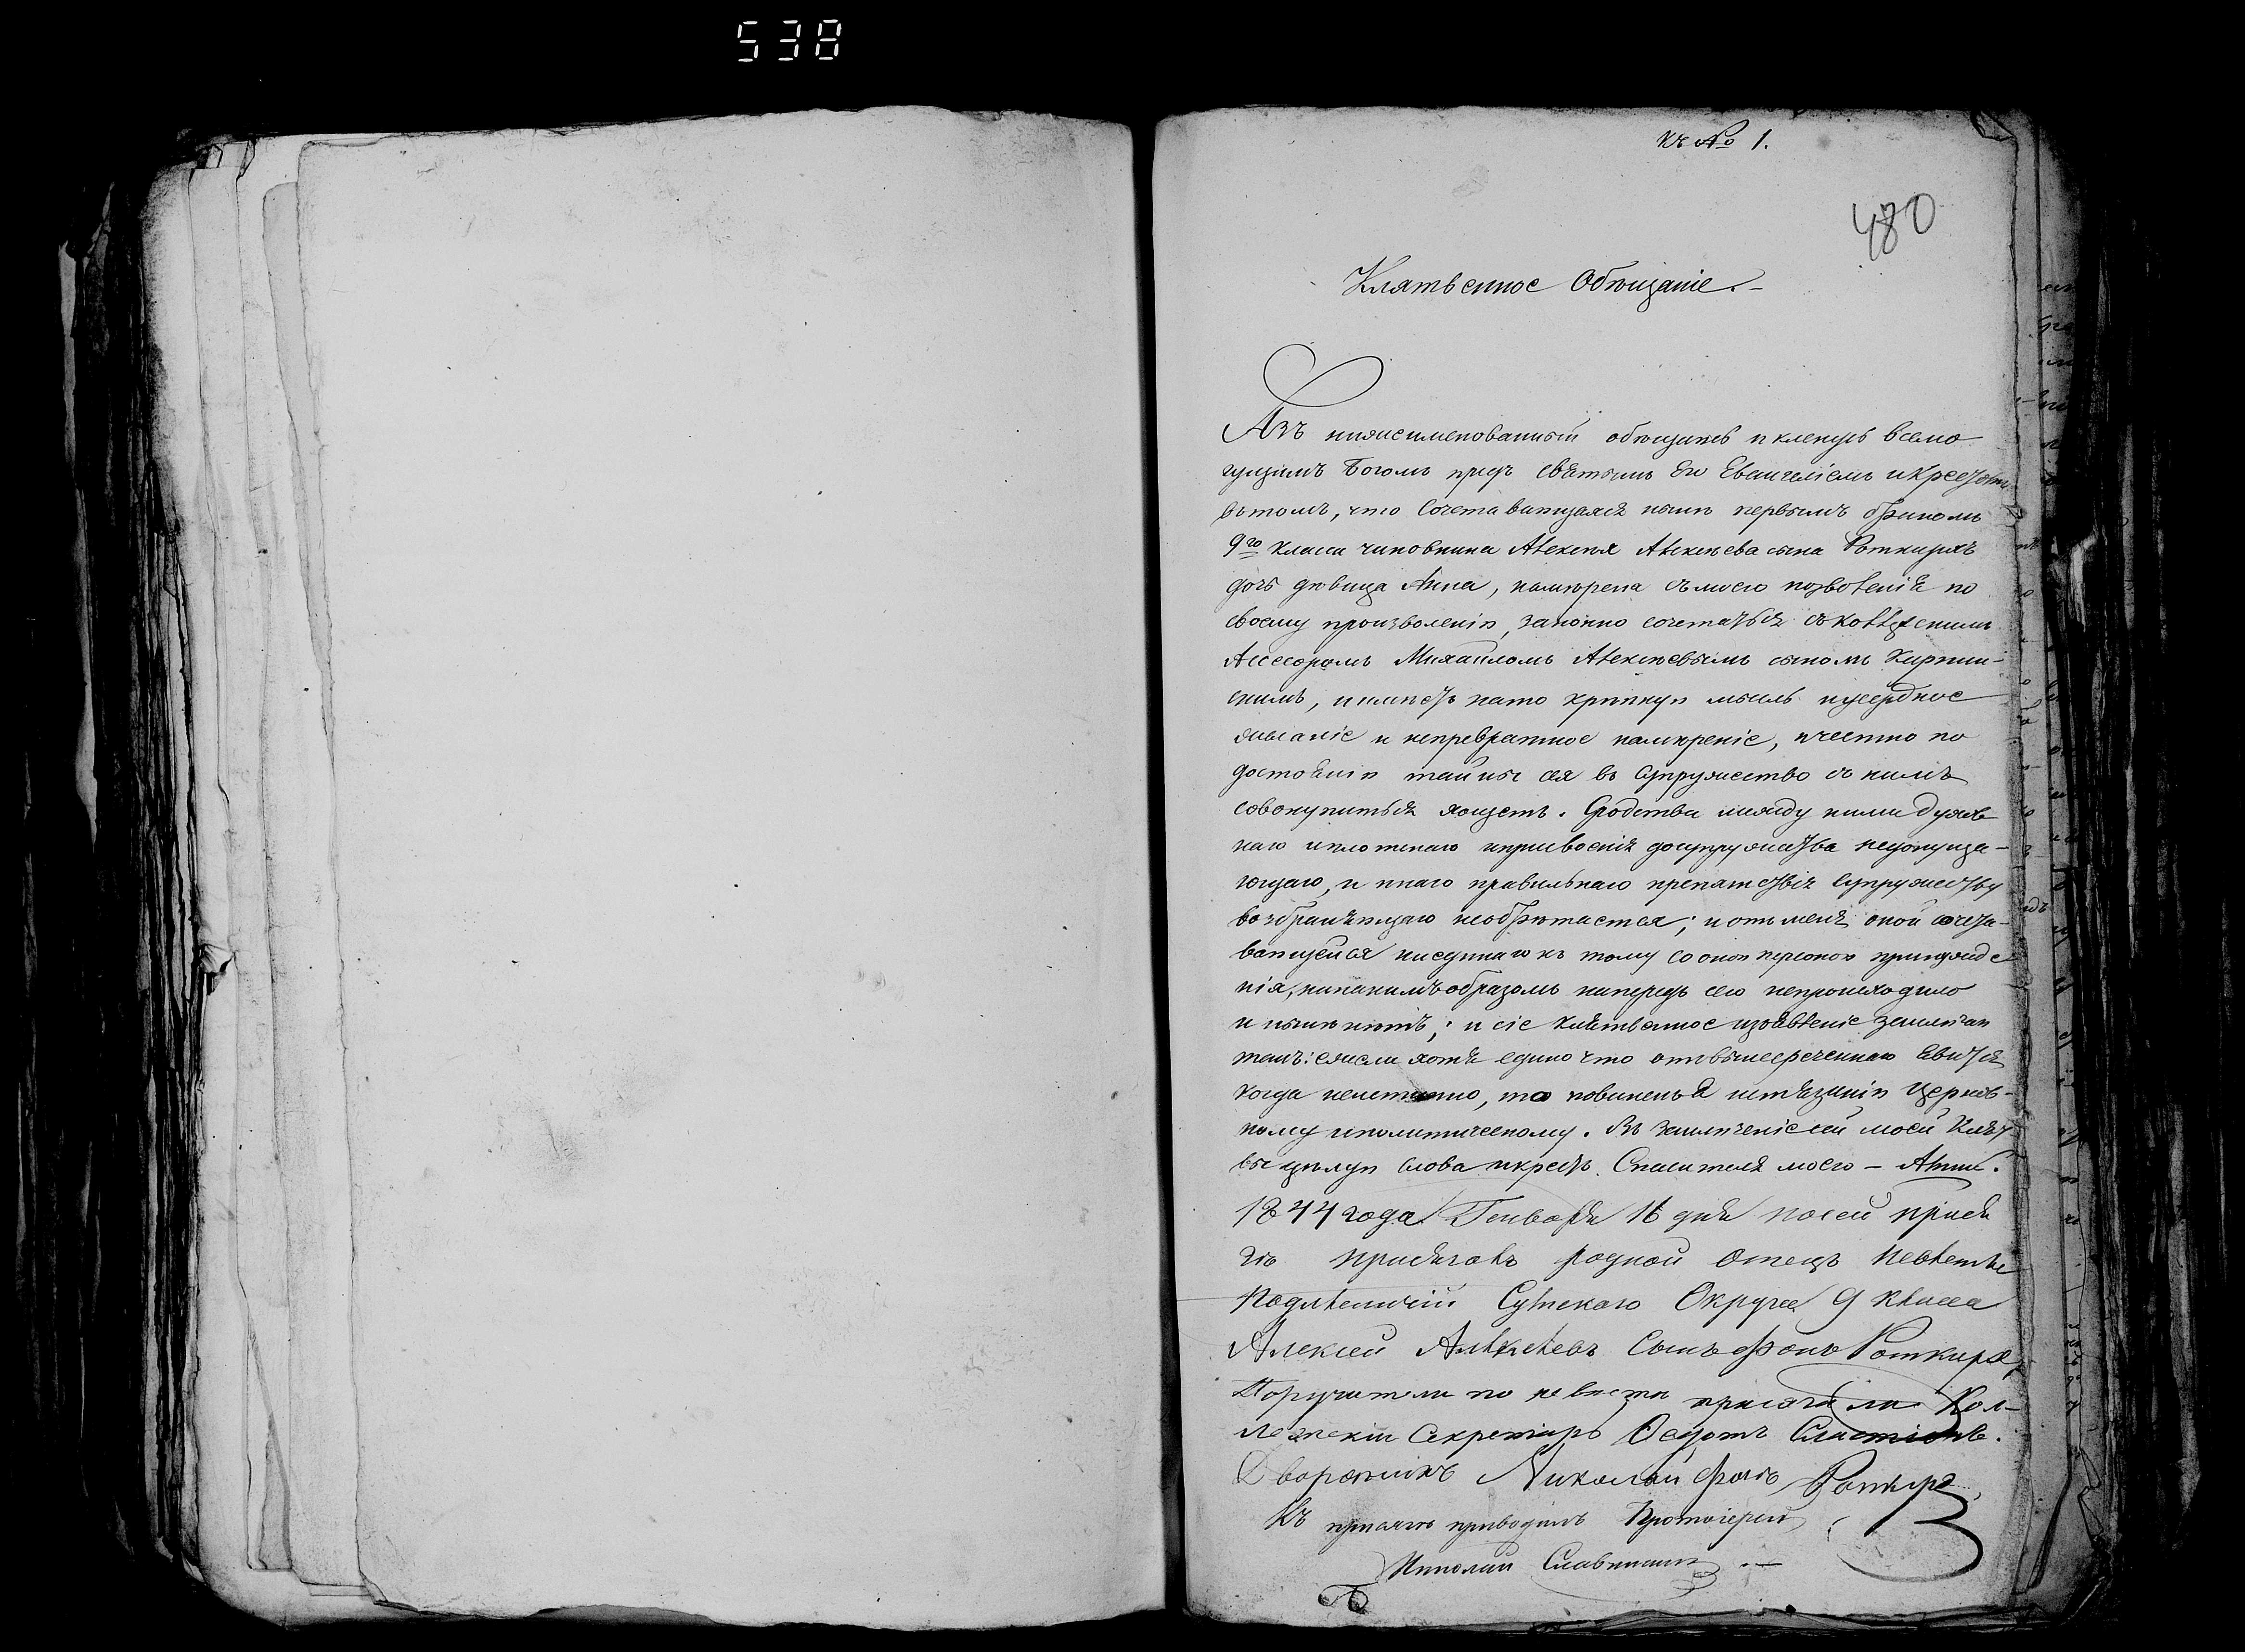 538
къ № 1.
480
Клятвенное Обѣщаніе.
Азъ нижеименованный обѣщаюсь и кленусь всемо
гущимъ Богомъ предъ святымъ Его Евангеліемъ и Крестомъ
въ томъ, что сочетавающаяся нынѣ первымъ бракомъ
9го класса чиновника Алексѣя Алексѣева сына Роткирхъ
дочь дѣвица Анна, намѣрена съ моего позволенія по
своему произволенію, законно сочетаться съ Коллежскимъ
Ассесоромъ Михаиломъ Алексѣевымъ сыномъ
скимъ, и имѣетъ на то крѣпкую мысль и усердное
желаніе и непревратное намѣреніе, и честно по
достоянію тайны сея въ супружество съ нимъ
совокупиться хощетъ. Сродства между ними духов
наго и плотскаго и присвоенія до супружества недопуща-
ющаго, и инаго правильнаго препятствія супружеству
возбраняющаго необрѣтается; и отъ меня оной сочета-
вающейся ниединаго къ тому со оною персоною принужде
нія, никакимъ образомъ напередъ сего непроисходило
и нынѣ нѣтъ; и сіе клятвенное изъявленіе заключаю
такъ: ежели хотя едино что отъ вышереченнаго явится
когда неистинно, то повиненъ я истязанію церков-
ному и политическому. Въ заключеніе сей моей клят
вы цѣлую слова и крестъ Спасителя моего – Аминь.
1844 года Генваря 16 дня по сей прися
гѣ присягалъ родной отецъ невѣсты
Подлѣсничій Округа 9 класса
Алексей Алексѣевъ сынъ фонъ Роткирхъ
Поручители по невѣстѣ присягали Кол-
лежскій Секретарь
Дворянинъ Николай фонъ Роткирхъ
Къ присягѣ приводилъ Протоіерей
Николай